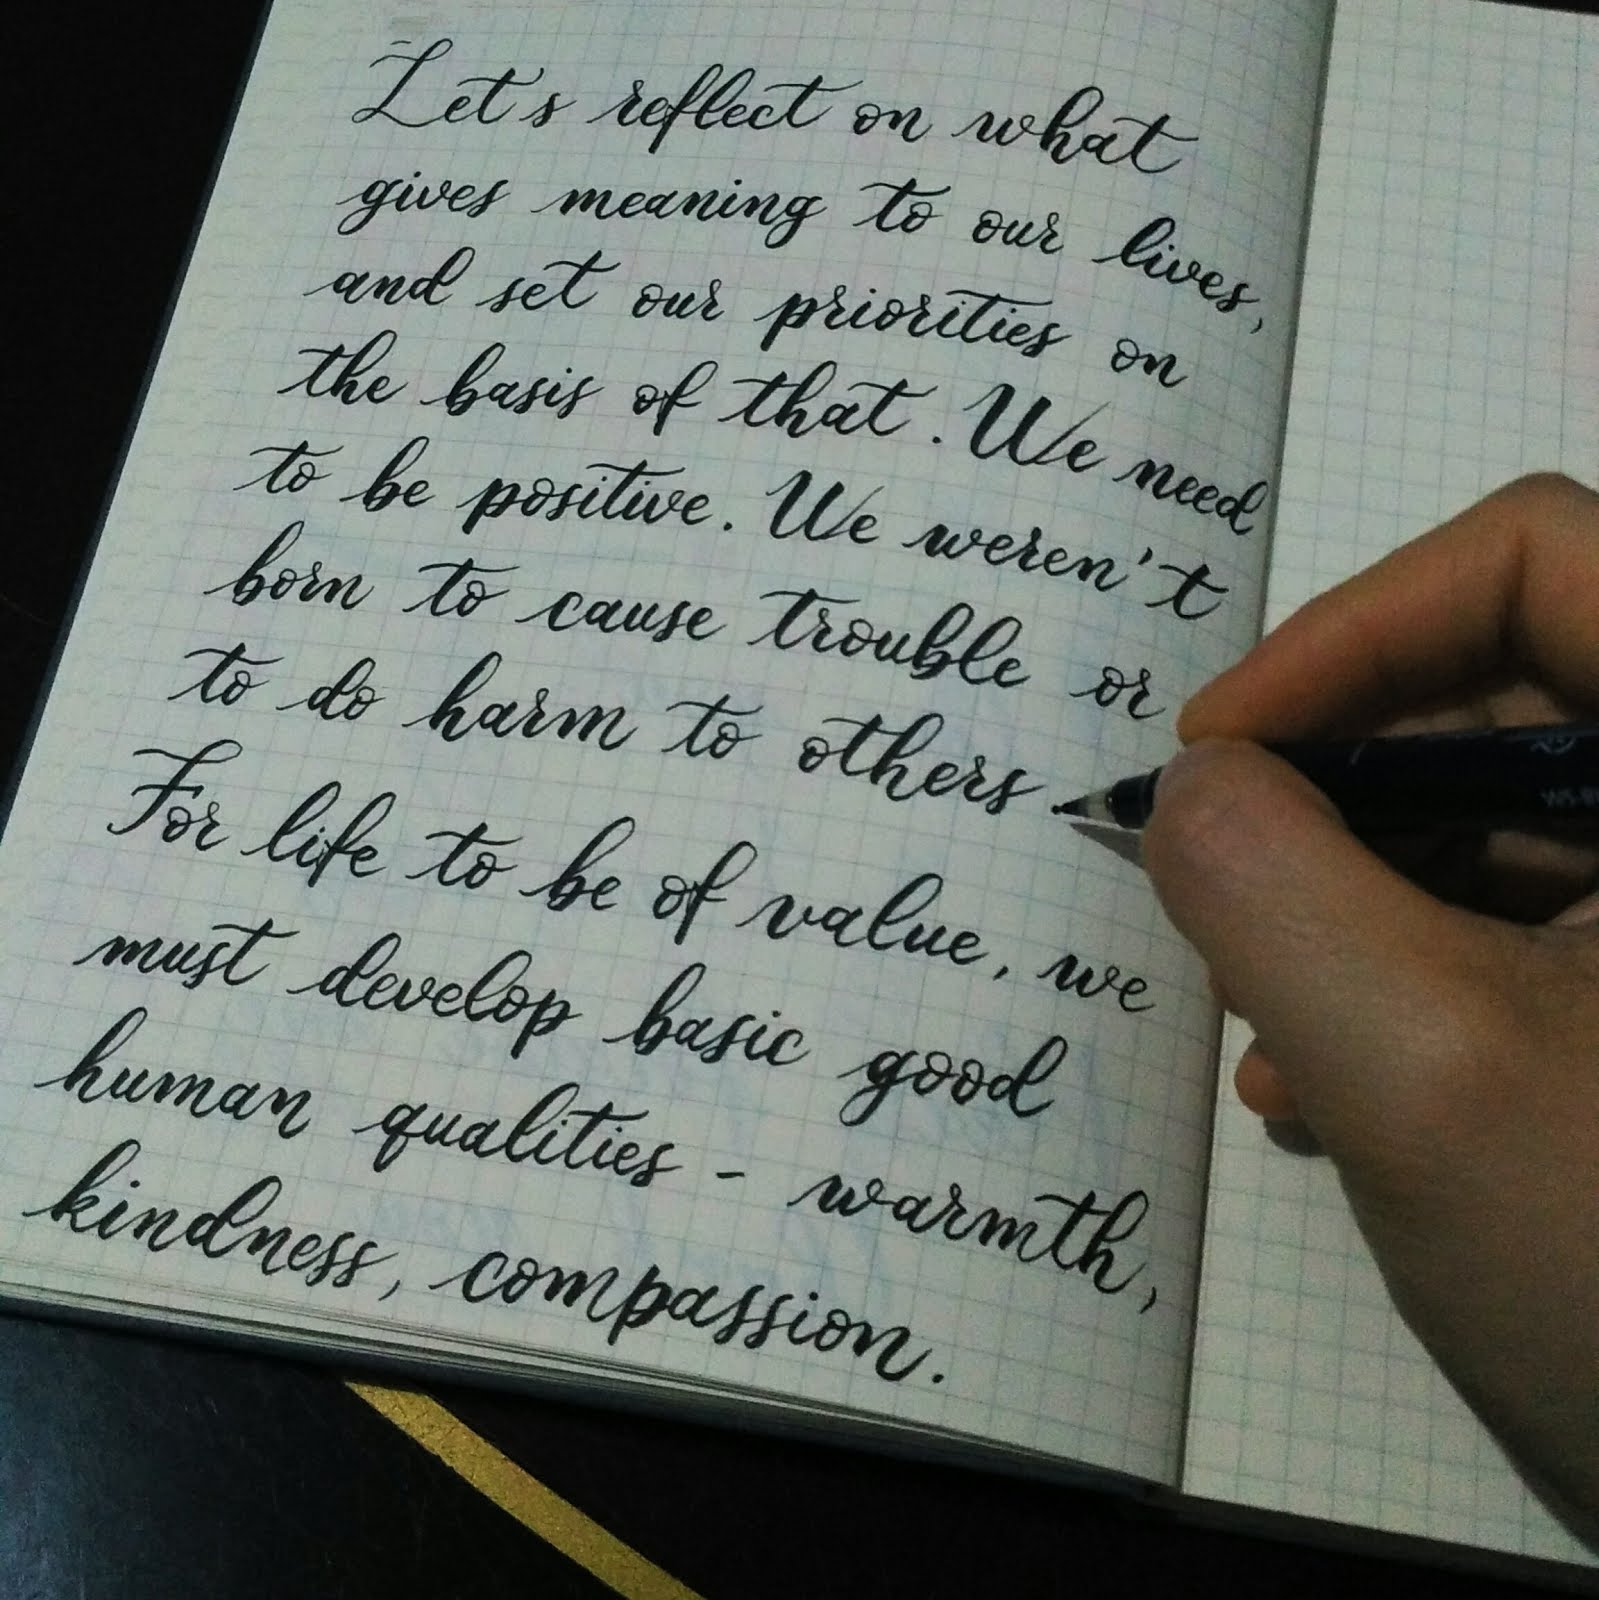 Let's reflect on what
gives meaning to our lives,
and set our priorities on
the basis of that. We need
to be positive. We weren't
born to cause trouble or
to do harm to others.
For life to be of value, we
must develop basic good
human qualities - warmth,
kindness, compassion.